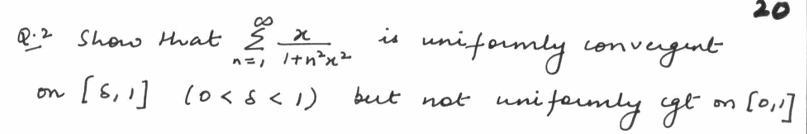 20
Q.2 Show that ∞ Σ n=1 x / 1+n²x² is uniformly convergent
on [δ, 1] (0 < δ < 1) but not uniformly cgt on [0,1]